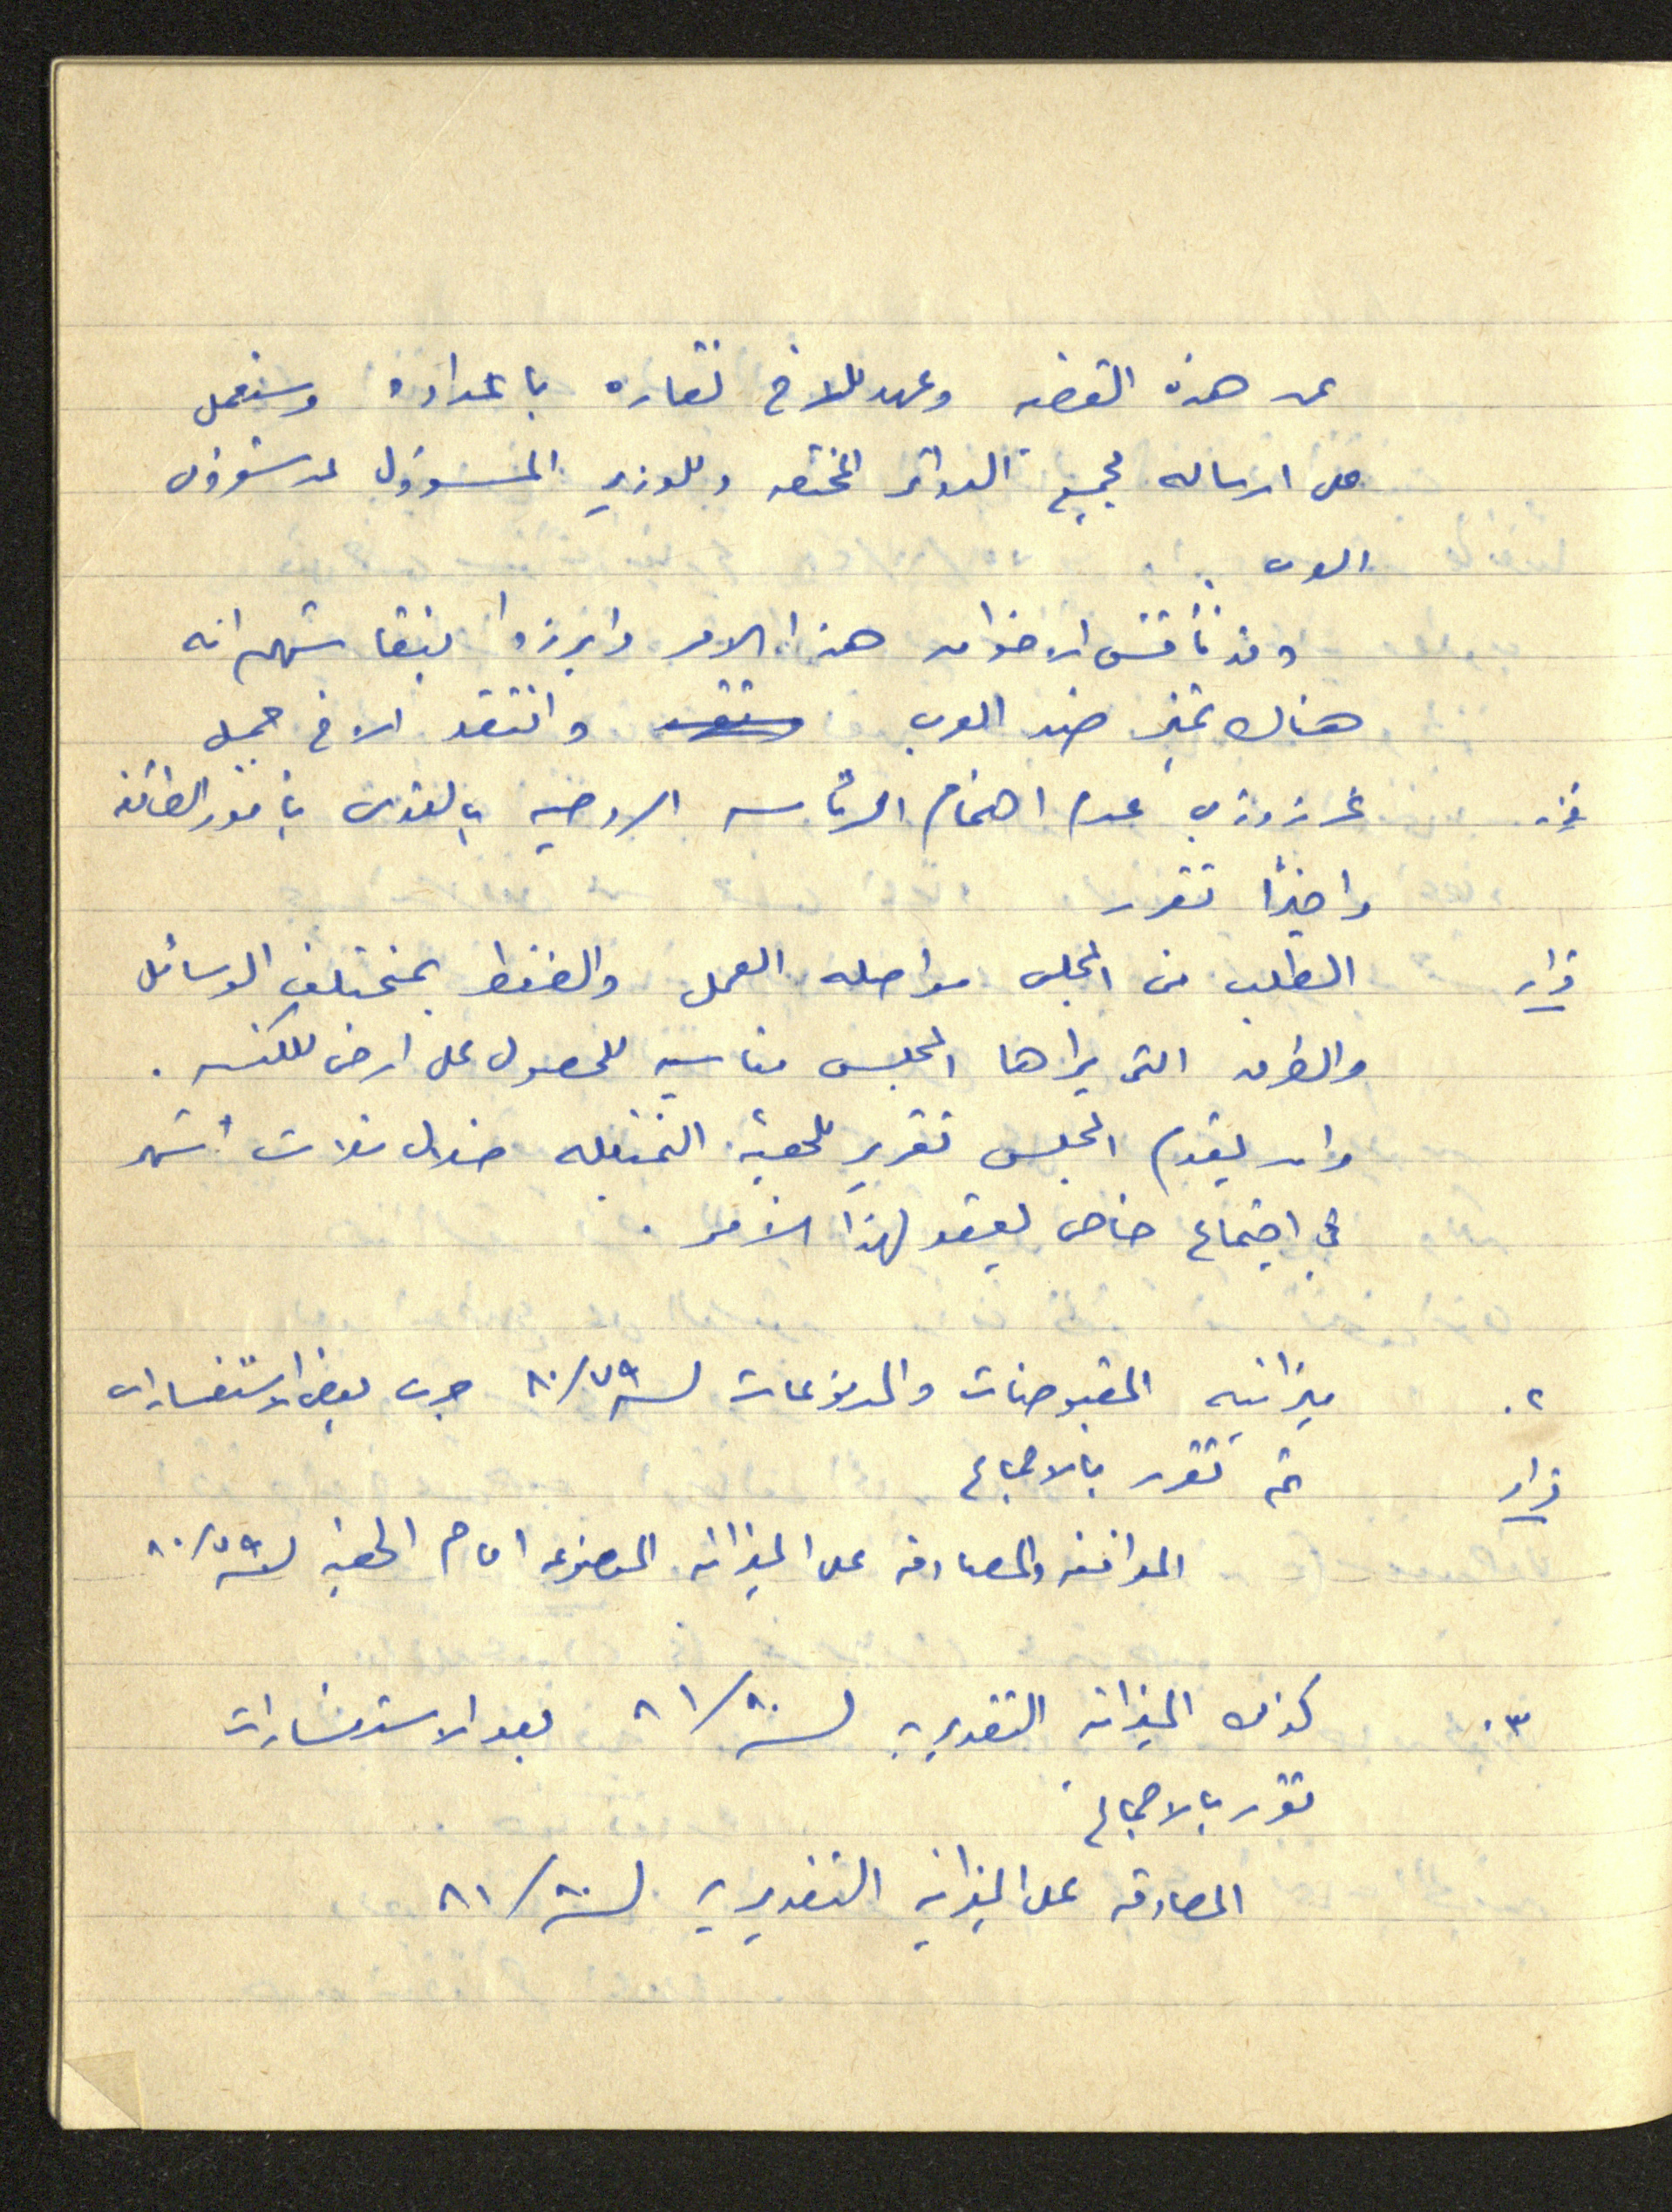 عن هذه القضيه وعهد للاخ نقاره باعداده وسنعمل
على ارساله لجميع الدوائر المختصه وللوزير المسؤول عن شؤون
العرب .
وقد ناقش الاخوان هذا الامر وابرزوا بنقاشهم انه
هناك تميز ضد العرب وانتقد الاخ جميل
غرزوزي عدم اهتمام الرئاسه الروحيه بالقدس بامور الطائفه
واخيرًا تقرر
قرار الطلب من المجلس مواصله العمل والضغط بمختلف الوسائل
والطرق التي يراها المجلس مناسبه للحصول على ارض للكنيسه .
وان يقدم المجلس تقرير للهيئه التمثيله خلال ثلاث أشهر
في اجتماع خاص يعقد لهذا الأمر .
٢. ميزانيه المقبوضات والمدفوعات لسنة ٨٠/٧٩ جرت بعض الاستفسارات
قرار ثم تقرر بالاجماع
الموافقه والمصادقه على الميزانه المعروضه امام الهيئه لسنة ٨٠/٧٩
٣. كذلك الميزانه التقديريه لسنة ٨١/٨٠ بعد الاستفسارات
تقرر بالاجماع
المصادقه على الميزانيه التقديريه لسنة ٨١/٨٠